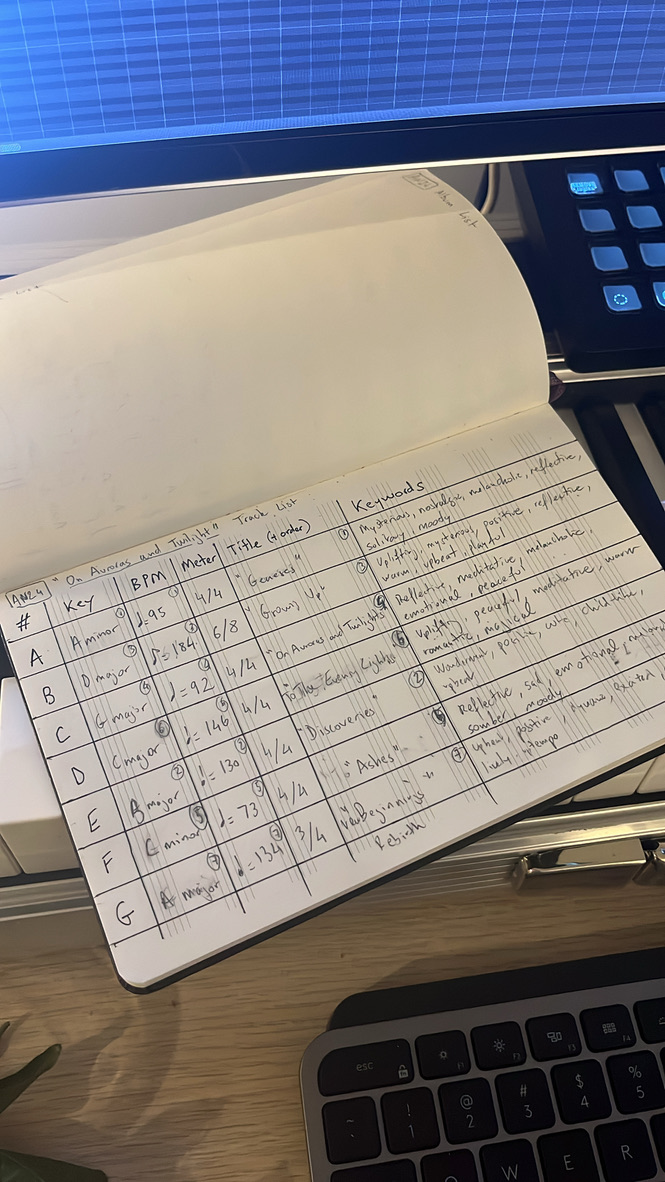 Album List
"On Auroras and Twilight" Track List
# Key BPM Meter Title (+ order) Keywords
A A minor ① ♩=95 ① 4/4 "Geneses" ① Mysterious, nostalgic, melancholic, reflective,
solitary, moody
B D major ③ ♪=184 ③ 6/8 "Grown Up" ③ Uplifting, mysterious, positive, reflective,
warm, upbeat, playful
C G major ④ ♩=92 ④ 4/4 "On Auroras and Twilights" ④ Reflective, meditative, melancholic,
emotional, peaceful
D C major ⑥ ♩=146 ⑥ 4/4 Evening Lights" ⑥ Uplifting, peaceful, meditative, warm
romantic, magical
E B major ② ♩=130 ② 4/4 "Discoveries" ② positive, childlike,
upbeat
F C minor ⑤ ♩=73 ⑤ 4/4 "Ashes" Reflective, sad, emotional,
somber, moody
G A major ⑦ ♩=134 ⑦ 3/4 Beginnings" ⑦ upbeat, positive, elated,
lively, uptempo
Rebirth
esc F1 F2 F3 F4
~ ! 1 @ 2 # 3 $ 4 % 5
W E R